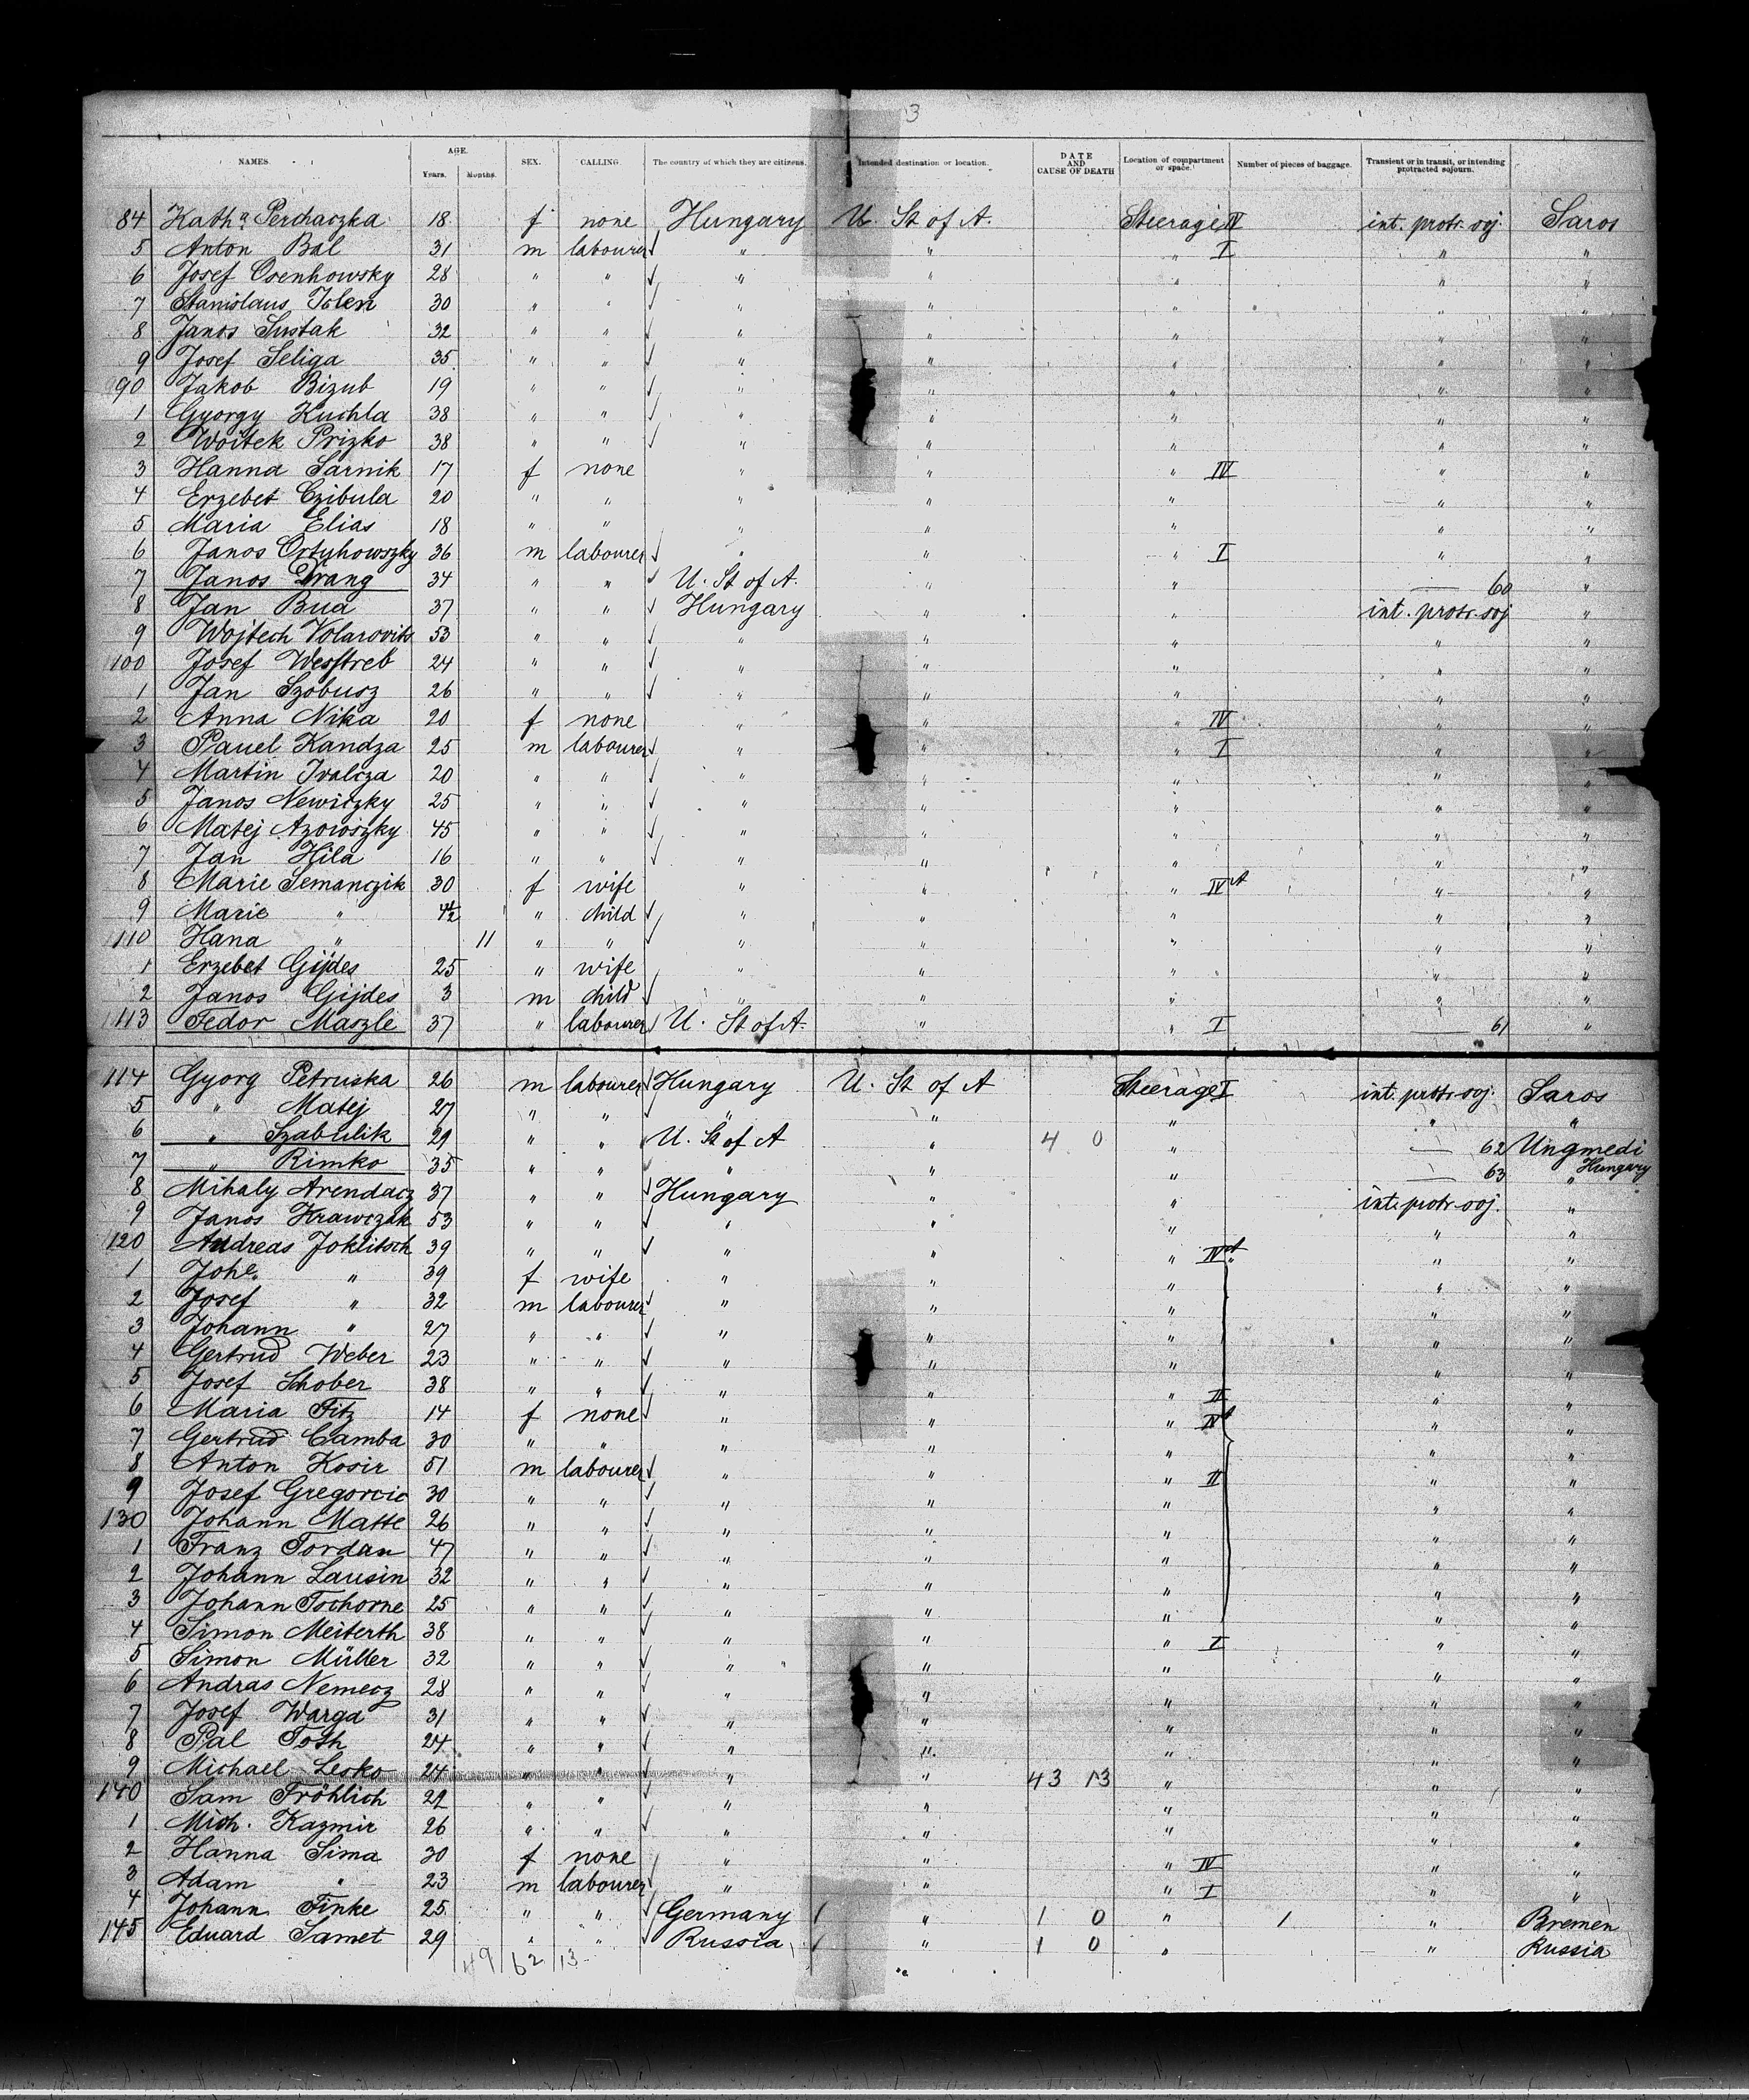 3
NAMES. AGE. Years. Months. SEX. CALLING. The country of which they are citizens. Intended destination or location. DATE AND CAUSE OF DEATH Location of compartment or space. Number of pieces of baggage. Transient or in transit, or intending protracted sojourn.
84 Katha Perchaczka 18 f none Hungary U. St of A. Steerage IV int. protr. soj. Saros
5 Anton Bal 31 m labourer ✓ " " " I " "
6 Josef Osenhowsky 28 " " ✓ " " " " "
7 Stanislaus Iolen 30 " " ✓ " " " " "
8 Janos Sustak 32 " " ✓ " " " " "
9 Josef Seliga 35 " " ✓ " " " " "
90 Jakob Bizub 19 " " ✓ " " " " "
1 Gyorgy Kuchla 38 " " ✓ " " " " "
2 Woitek Prizko 38 " " ✓ " " " " "
3 Hanna Sarnik 17 f none " " " IV " "
4 Erzebet Czibula 20 " " " " " " "
5 Maria Elias 18 " " " " " " "
6 Janos Ortuhowszky 36 m labourer ✓ " " " I " "
7 Janos Drang 34 " " ✓ U. St of A. " " — 60 "
8 Jan Bua 37 " " ✓ Hungary " " int. protr. soj "
9 Wojtech Volarovits 53 " " ✓ " " " " "
100 Josef Wesstreb 24 " " ✓ " " " " "
1 Jan Szobusz 26 " " ✓ " " " " "
2 Anna Nika 20 f none " " " IV " "
3 Pauel Kandza 25 m labourer ✓ " " " I " "
4 Martin Ivalcza 20 " " ✓ " " " " "
5 Janos Newiczky 25 " " ✓ " " " " "
6 Matej 45 " " ✓ " " " " "
7 Jan Hila 16 " " ✓ " " " " "
8 Marie Semanczik 30 f wife " " " IV A " "
9 Marie " 4½ " child ✓ " " " " "
110 Hana " 11 " " ✓ " " " " "
1 Erzebet Gijdes 25 " wife " " " " "
2 Janos Gijdes 3 m child ✓ " " " " "
113 Fedor Maszle 37 " labourer ✓ U. St of A. " " I — 61 "
114 Gyorg Petruska 26 m labourer ✓ Hungary U. St of A Steerage I int. protr. soj. Saros
5 " Matej 27 " " ✓ " " " " "
6 " Szabulik 29 " " U. St of A " 4 0 " — 62 Ungmedi
7 " Rimko 35 " " " " " — 63 " Hungary
8 Mihaly Arendacz 37 " " ✓ Hungary " " int. protr. soj. "
9 Janos Krawczak 53 " " ✓ " " " " "
120 Andreas Joklitsch 39 " " ✓ " " " IV A " "
1 Johe. " 39 f wife " " " " "
2 Josef " 32 m labourer ✓ " " " " "
3 Johann " 27 " " ✓ " " " " "
4 Gertrud Weber 23 " " ✓ " " " " "
5 Josef Schober 38 " " ✓ " " " II " "
6 Maria Fitz 14 f none ✓ " " " IV A " "
7 Gertrud Camba 30 " " " " " " "
8 Anton Kosir 51 m labourer ✓ " " " II " "
9 Josef Gregorcic 30 " " ✓ " " " " "
130 Johann Matte 26 " " ✓ " " " " "
1 Franz Tordan 47 " " ✓ " " " " "
2 Johann Lausin 32 " " ✓ " " " " "
3 Johann Tschorne 25 " " ✓ " " " " "
4 Simon Meiterth 38 " " ✓ " " " I " "
5 Simon Müller 32 " " ✓ " " " " "
6 Andras Nemecz 28 " " ✓ " " " " "
7 Josef Warga 31 " " ✓ " " " " "
8 Pal Toth 24 " " ✓ " " " " "
9 Michael Lesko 24 " " ✓ " " 43 13 " " "
140 Sam Fröhlich 29 " " ✓ " " " " "
1 Mich. Kazmir 26 " " ✓ " " " " "
2 Hanna Sima 30 f none " " " IV " "
3 Adam " 23 m labourer ✓ " " " I " "
4 Johann Finke 25 " " ✓ Germany " 1 0 " 1 " Bremen
145 Eduard Samet 29 " " ✓ Russia " 1 0 " " Russia
49 62 13